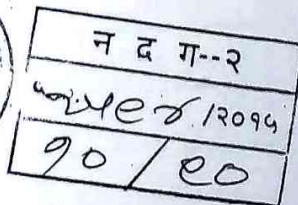 न द ग--२
/२०१५
१० / ९०